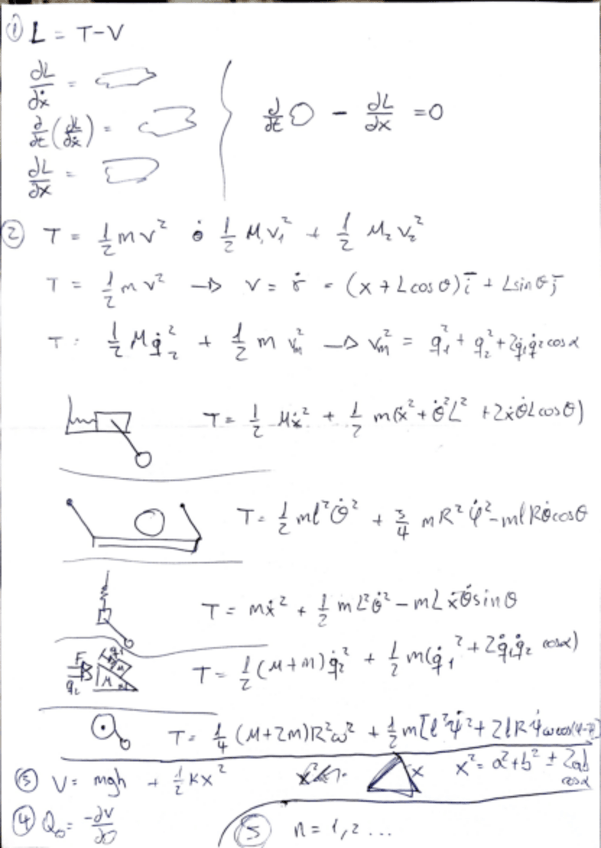 ① L = T-V
∂L/∂ẋ =
∂/∂t (∂L/∂ẋ) =
∂L/∂x =
∂/∂t - ∂L/∂x = 0
② T = 1/2 mv² ó 1/2 M₁v₁² + 1/2 M₂v₂²
T = 1/2 mv² → v = ṙ = (x + Lcosθ)i̅ + Lsinθj̅
T = 1/2 Mq̇₂² + 1/2 m vm² → vm² = q̇₁² + q̇₂² + 2q̇₁q̇₂cosα
T = 1/2 Mẋ² + 1/2 m(ẋ² + θ̇²L² + 2ẋθ̇Lcosθ)
T = 1/2 ml²θ̇² + 3/4 mR²φ̇² - mlRθ̇cosθ
T = mẋ² + 1/2 mL²θ̇² - mLẋθ̇sinθ
F
q₂
q₁
M
T = 1/2 (M+m)q̇₂² + 1/2 m(q̇₁² + 2q̇₁q̇₂ cosα)
T = 1/4 (M+2m)R²ω² + 1/2 m[l²ψ̇² + 2lRψ̇ωcos(φ-ψ)]
③ V = mgh + 1/2 Kx²
x
x² = a² + b² ± 2ab cosα
④ Qθ = -∂V/∂θ
⑤ n = 1,2 ...